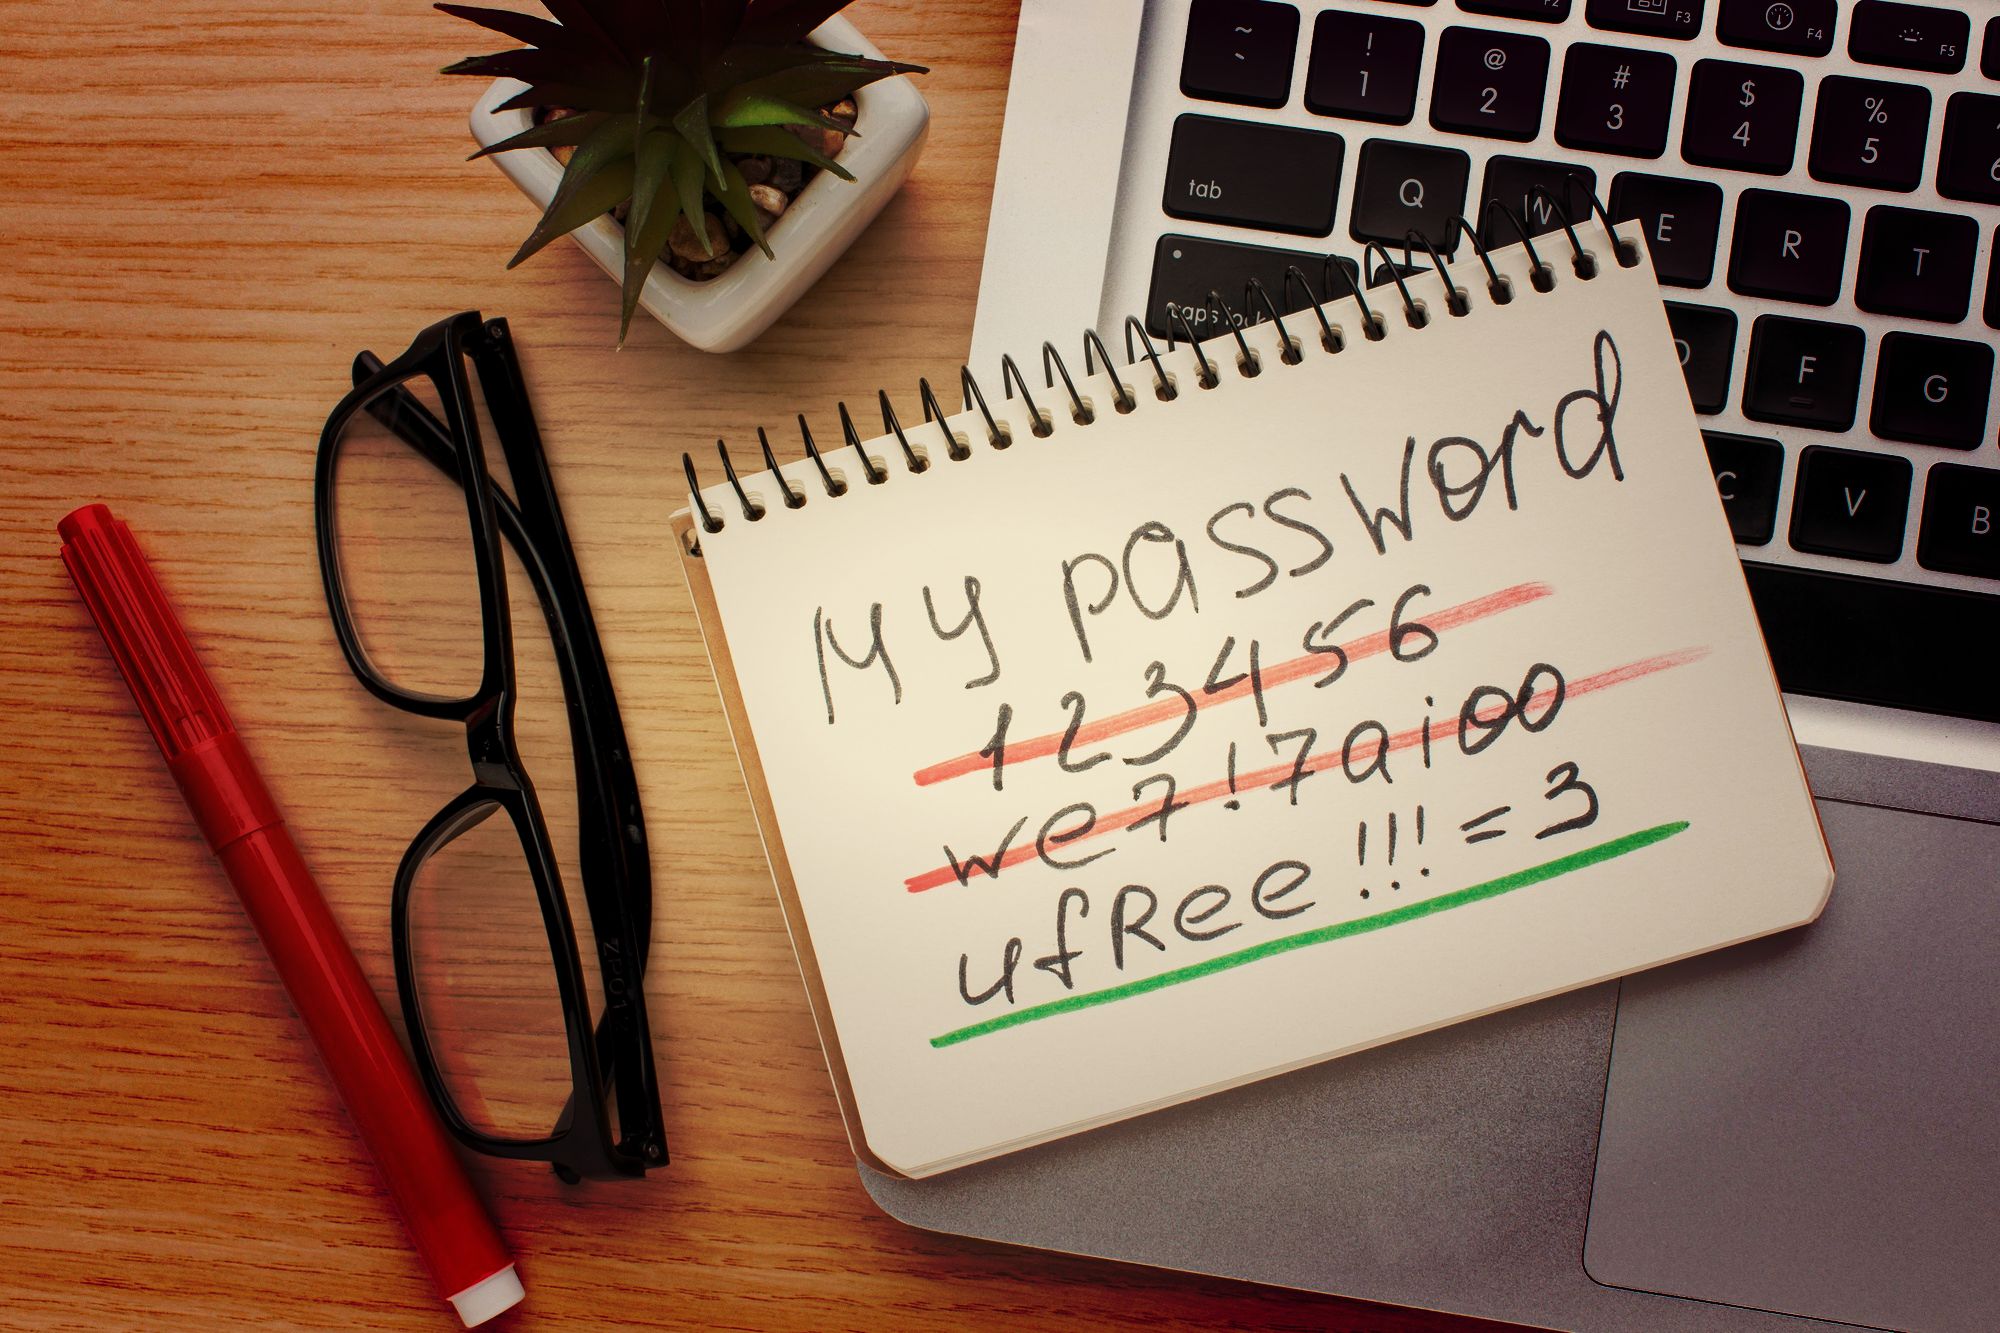 ~ ! @ # $ %
` 1 2 3 4 5
F2 F3 F4 F5
tab Q W E R T
caps lock D F G
C V B
My password
123456
we7!7aioo
ufRee!!!=3
ZP012